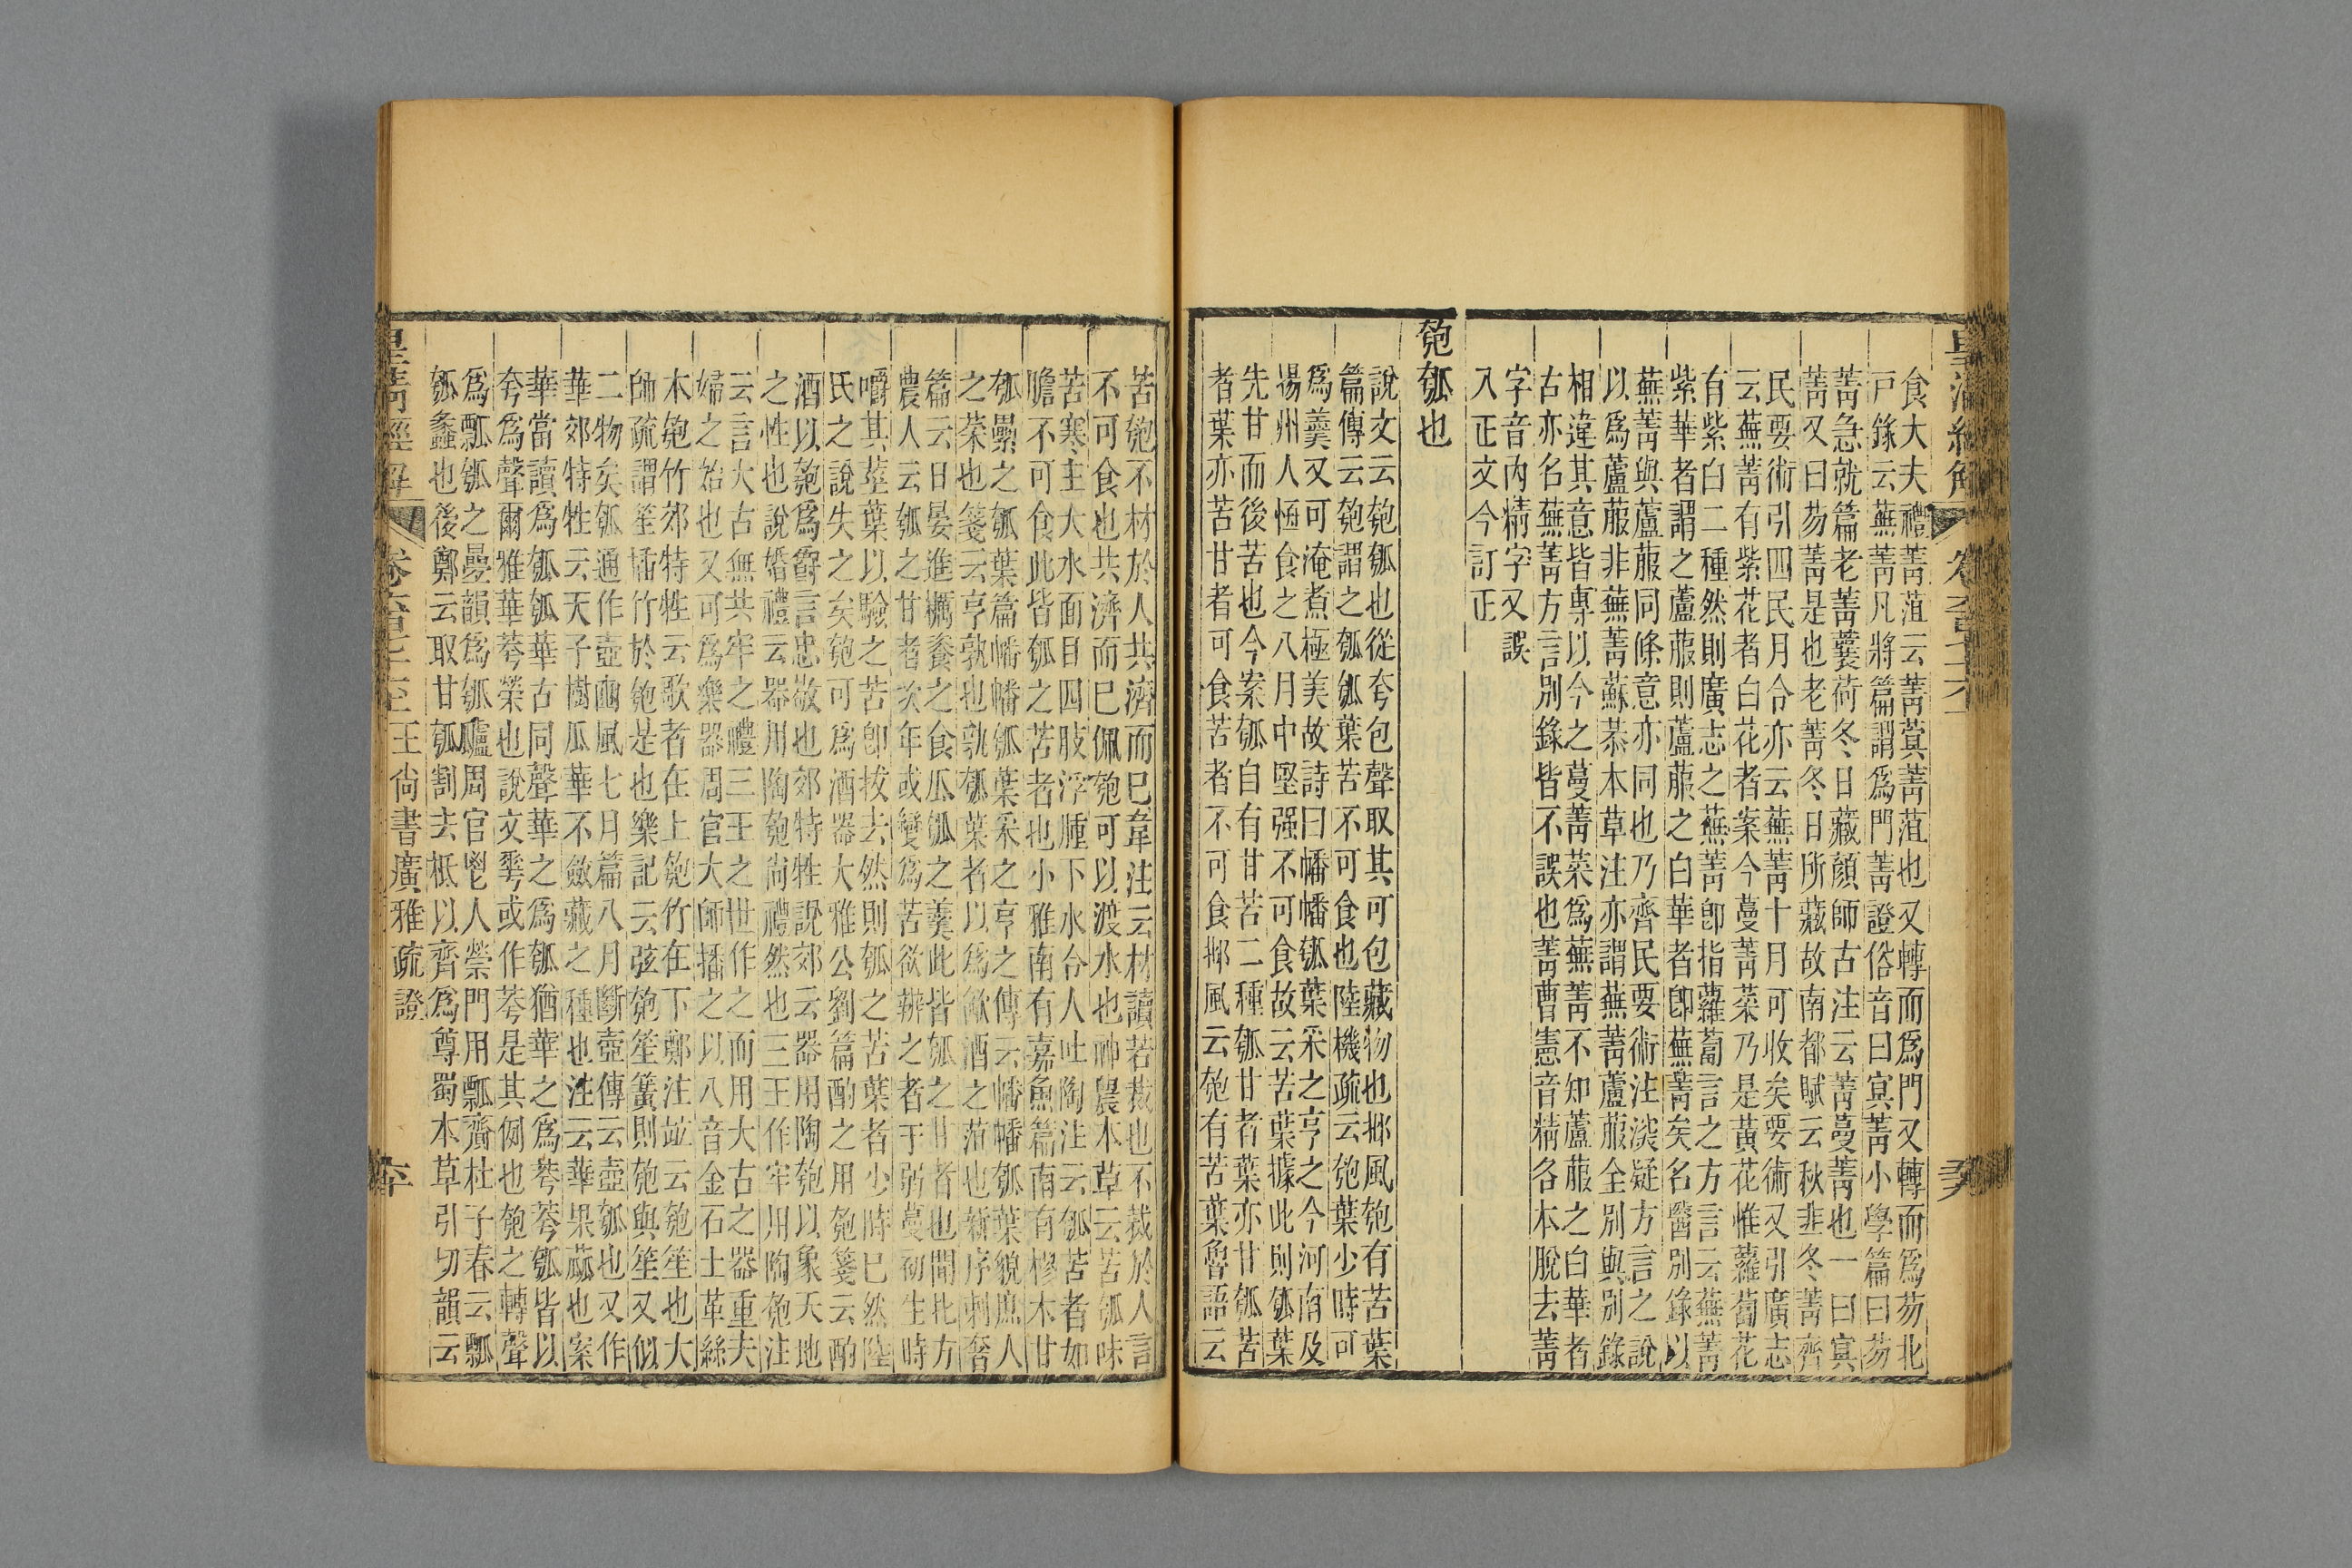 皇清經解
食大夫禮菁菹云菁蓂菁菹也又轉而爲門又轉而爲芴北
戸錄云蕪菁凡將篇謂爲門菁證俗音曰冥菁小學篇曰芴
菁急就篇老菁蘘荷冬日藏顔師古注云菁蔓菁也一曰冥
菁又曰芴菁是也老菁冬日所藏故南都賦云秋韭冬菁齊
民要術引四民月令亦云蕪菁十月可收矣要術又引廣志
云蕪菁有紫花者白花者案今蔓菁菜乃是黃花惟蘿蔔花
有紫白二種然則廣志之蕪菁卽指蘿蔔言之方言云蕪菁
紫華者謂之蘆菔則蘆菔之白華者卽蕪菁矣名醫別錄以
蕪菁與蘆菔同條意亦同也乃齊民要術注淡疑方言之說
以爲蘆菔非蕪菁蘇恭本草注亦謂蕪菁蘆菔全別與別錄
相違其意皆專以今之蔓菁菜爲蕪菁不知蘆菔之白華者
古亦名蕪菁方言別錄皆不誤也菁曹憲音精各本脫去菁
字音內精字又誤
入正文今訂正
匏瓠也
說文云匏瓠也從夸包聲取其可包藏物也邶風匏有苦葉
篇傳云匏謂之瓠瓠葉苦不可食也陸機疏云匏葉少時可
爲羹又可淹煮極美故詩曰幡幡瓠葉采之亨之今河南及
揚州人恆食之八月中堅强不可食故云苦葉據此則瓠葉
先甘而後苦也今案瓠自有甘苦二種瓠甘者葉亦甘瓠苦
者葉亦苦甘者可食苦者不可食邶風云匏有苦葉魯語云
苦匏不材於人共濟而已韋注云材讀若裁也不裁於人言
不可食也共濟而已佩匏可以渡水也神農本草云苦瓠味
苦寒主大水面目四肢浮腫下水令人吐陶注云瓠苦者如
膽不可食此皆瓠之苦者也小雅南有嘉魚篇南有樛木甘
瓠纍之瓠葉篇幡幡瓠葉采之亨之傳云幡幡瓠葉貌庶人
之菜也箋云亨孰也孰瓠葉者以爲飮酒之菹也新序刺奢
篇云日晏進糲餐之食瓜瓠之羹此皆瓠之甘者也閒北方
農人云瓠之甘者次年或變爲苦欲辨之者于弱蔓初生時
嚼其莖葉以驗之苦卽拔去然則瓠之苦葉者少時已然陸
氏之說失之矣匏可爲酒器大雅公劉篇酌之用匏箋云酌
酒以匏爲爵言忠敬也郊特牲說郊云器用陶匏以象天地
之性也說婚禮云器用陶匏尙禮然也三王作牢用陶匏注
云言大古無共牢之禮三王之世作之而用大古之器重夫
婦之始也又可爲樂器周官大師播之以八音金石土革絲
木匏竹郊特牲云歌者在上匏竹在下鄭注竝云匏笙也大
師疏謂笙插竹於匏是也樂記云弦匏笙簧則匏與笙又似
二物矣瓠通作壺豳風七月篇八月斷壺傳云壺瓠也又作
華郊特牲云天子樹瓜華不斂藏之種也注云華果蓏也案
華當讀爲瓠瓠華古同聲華之爲瓠猶華之爲荂荂瓠皆以
夸爲聲爾雅華荂榮也說文䔢或作荂是其例也匏之轉聲
爲瓢瓠之曡韻爲瓠𤬛周官鬯人禜門用瓢齎杜子春云瓢
瓠蠡也後鄭云取甘瓠割去柢以齊爲尊蜀本草引切韻云
王尙書廣雅疏證